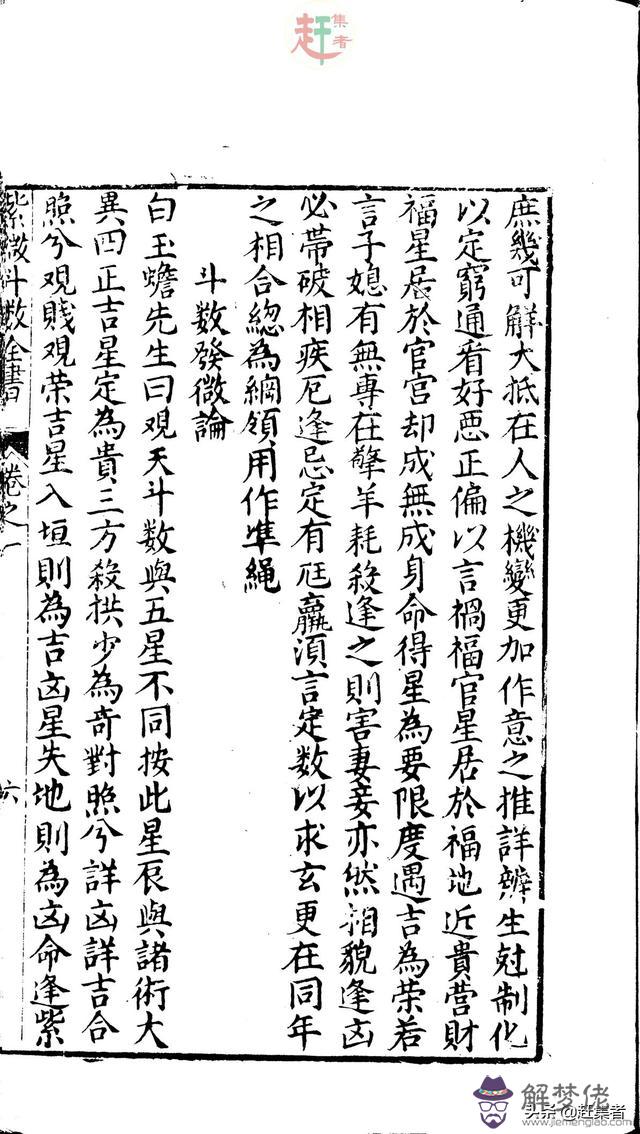 赶集者
庶幾可觧大抵在人之機變更加作意之推詳辨生尅制化
以定窮通看好惡正偏以言禍福官星居於福地近貴营財
福星居於官宫却成無成身命得星為要限度遇吉為荣若
言子媳有無專在擎羊耗殺逢之則害妻妾亦然相貌逢凶
必帶破相疾厄逢忌定有尫羸湏言定数以求玄更在同年
之相合總為綱領用作凖繩
斗数發微論
白玉蟾先生曰观天斗数與五星不同按此星辰與諸術大
異四正吉星定為貴三方殺拱少為奇對照兮詳凶詳吉合
照兮观賤观荣吉星入垣則為吉凶星失地則為凶命逢紫
紫微斗数全書
卷之一
六
解梦佬
www.jiemenglao.com
头条@赶集者